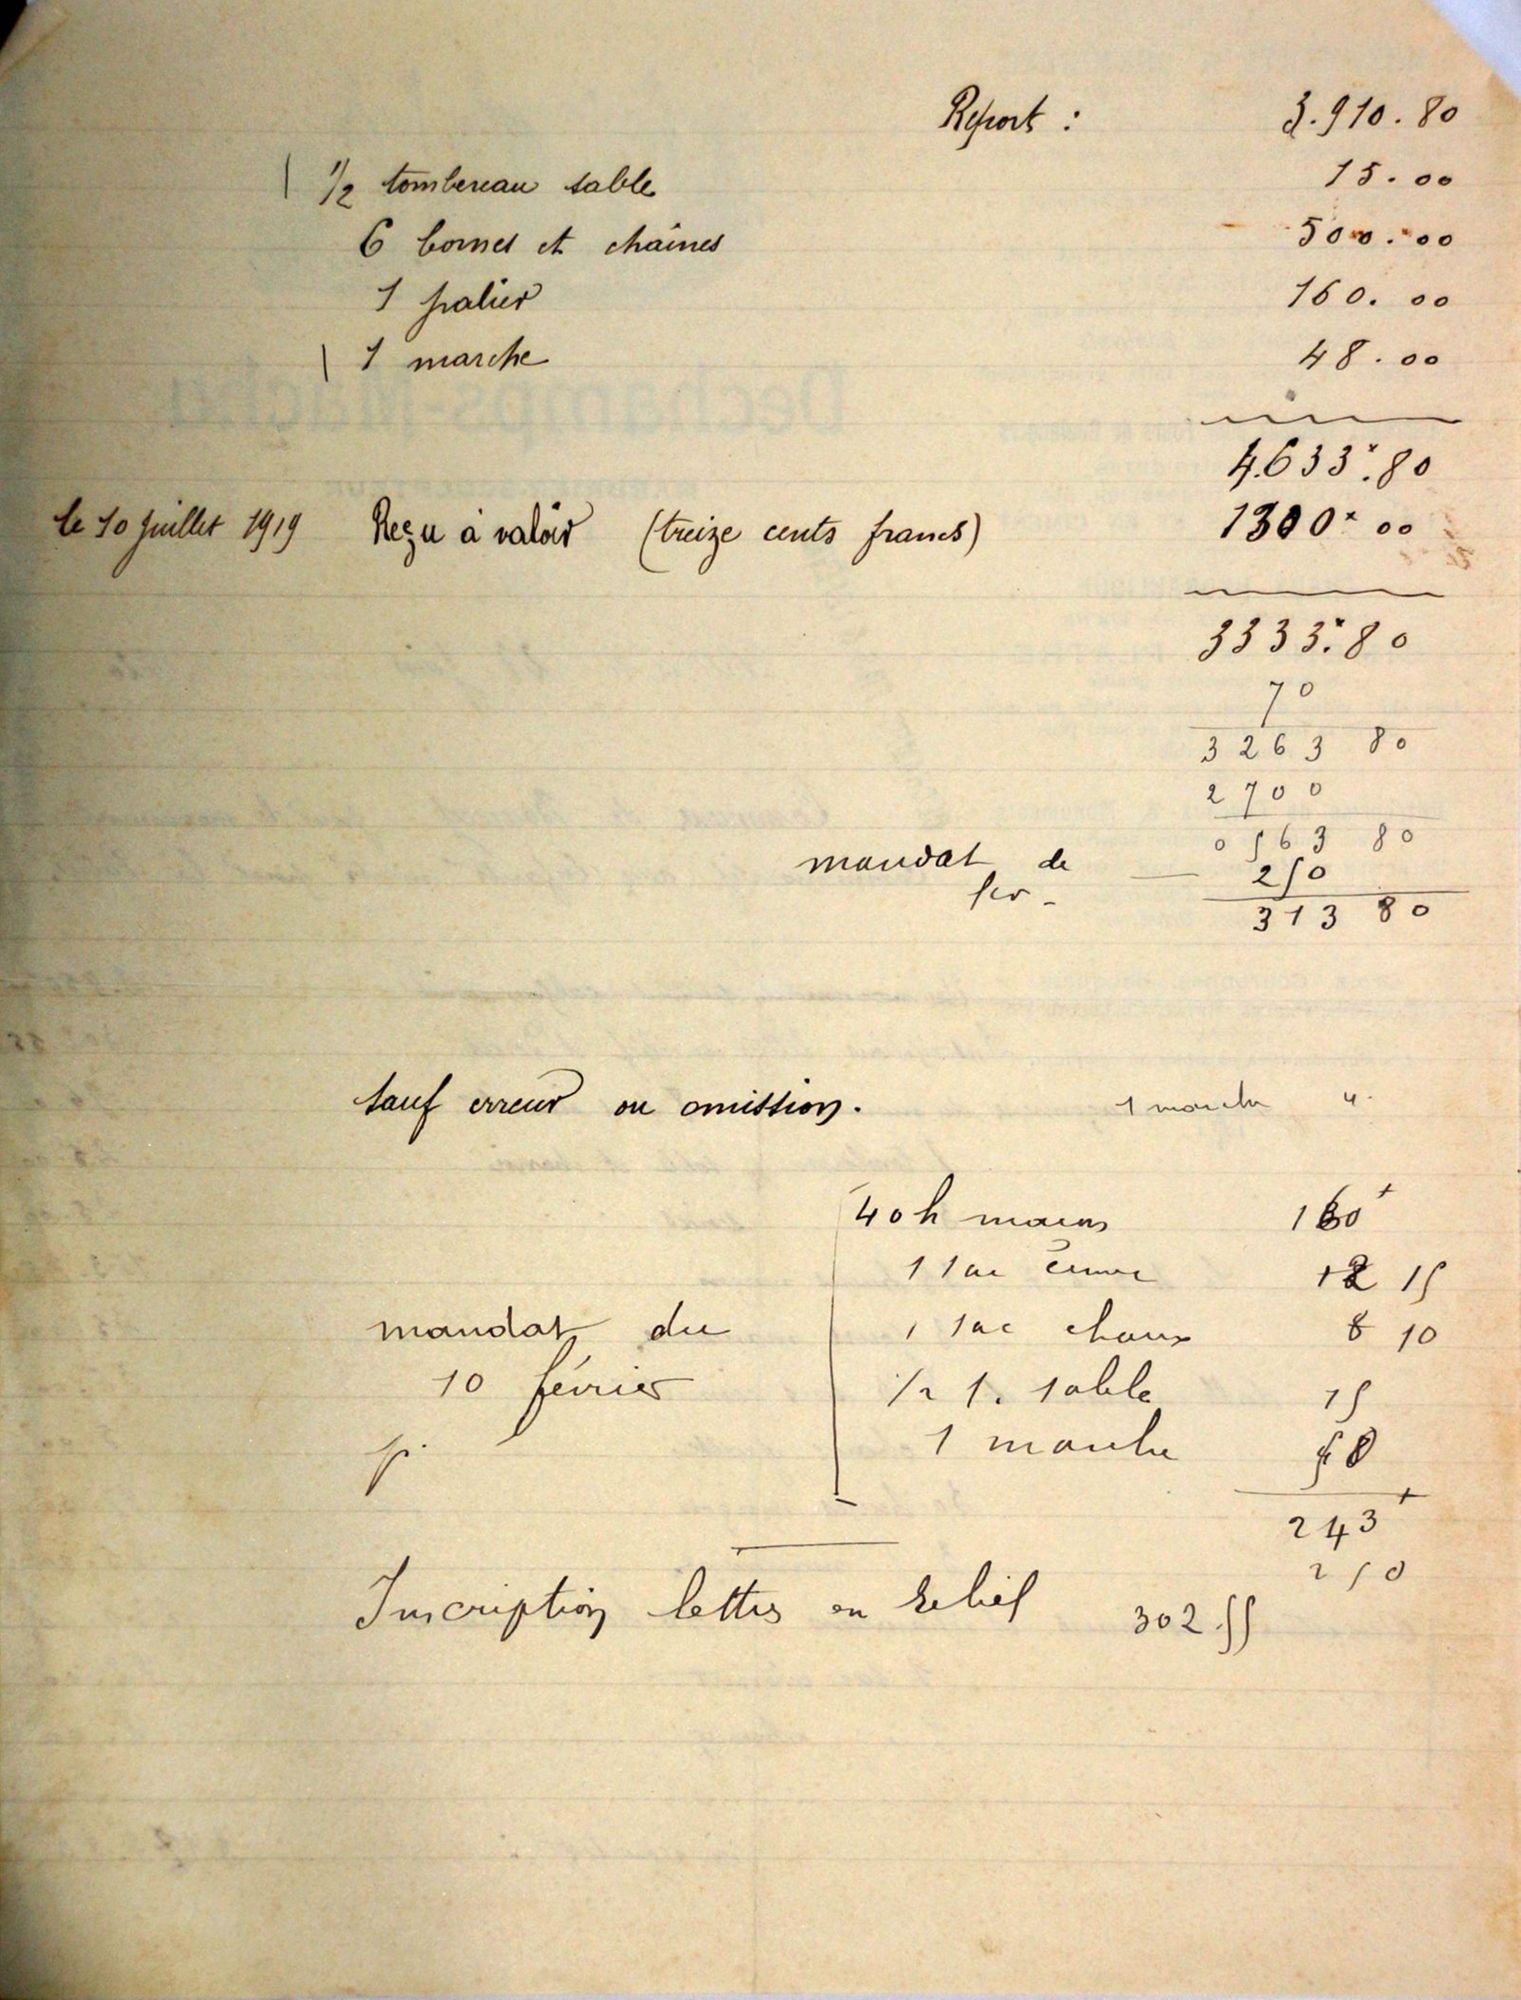 Report : 3.910.80
1/2 tombereau sable 15.00
6 bornes et chaînes 500.00
1 palier 160.00
1 marche 48.00
4.633.80
le 10 juillet 1919 Reçu à valoir (treize cents francs) 1300 00
3333.80
70
3263 80
2700
0563 80
mandat de 250
fev -
313 80
sauf erreur ou omission.
1 marche 4.
40 h maçon 160
1 sac 12 15
mandat du 1 sac chaux 8 10
10 février 1/2 t. sable 15
p. 1 marche 48
243
250
Inscription lettres en relief 302.55